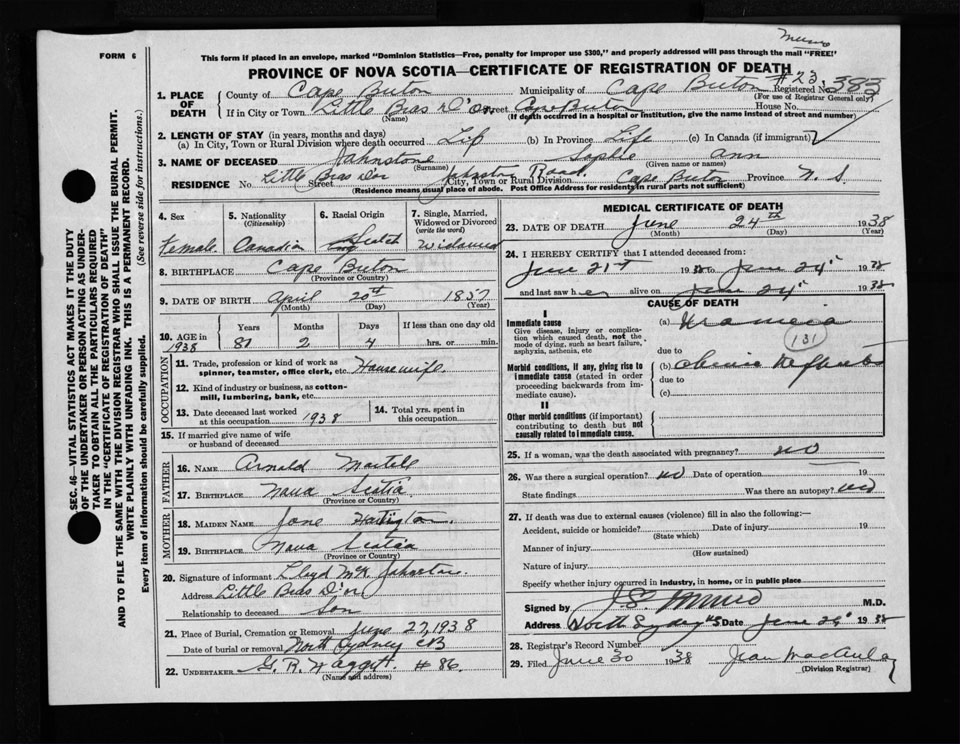 Munro
FORM 6
This form if placed in an envelope, marked "Dominion Statistics—Free, penalty for improper use $300," and properly addressed will pass through the mail "FREE!"
PROVINCE OF NOVA SCOTIA—CERTIFICATE OF REGISTRATION OF DEATH
#23, 383
1. PLACE OF DEATH
County of Cape Breton Municipality of Cape Breton Registered No.
(For use of Registrar General only)
If in City or Town Little Bras D'or Street Cape Breton House No.
(Name) (If death occurred in a hospital or institution, give the name instead of street and number)
2. LENGTH OF STAY (in years, months and days)
(a) In City, Town or Rural Division where death occurred Life (b) In Province Life (c) In Canada (if immigrant)
3. NAME OF DECEASED Johnstone Sophie Ann
(Surname) (Given name or names)
RESIDENCE No. Little Bras Dor Street Johnston Road City, Town or Rural Division Cape Breton Province N. S.
(Residence means usual place of abode. Post Office Address for residents in rural parts not sufficient)
4. Sex
Female
5. Nationality
(Citizenship)
Canadian
6. Racial Origin
Scotch
7. Single, Married, Widowed or Divorced
(write the word)
Widowed
8. BIRTHPLACE Cape Breton
(Province or Country)
9. DATE OF BIRTH April 20th 1857
(Month) (Day) (Year)
10. AGE in 1938
Years Months Days If less than one day old
81 2 4 hrs. or min.
OCCUPATION
11. Trade, profession or kind of work as
spinner, teamster, office clerk, etc. Housewife
12. Kind of industry or business, as cotton-
mill, lumbering, bank, etc.
13. Date deceased last worked
at this occupation 1938
14. Total yrs. spent in
this occupation
15. If married give name of wife
or husband of deceased
FATHER
16. NAME Arnold Martell
17. BIRTHPLACE Nova Scotia
(Province or Country)
MOTHER
18. MAIDEN NAME Jane
19. BIRTHPLACE Nova Scotia
(Province or Country)
20. Signature of informant Lloyd McK Johnston
Address Little Bras D'or
Relationship to deceased Son
21. Place of Burial, Cremation or Removal June 27, 1938
Date of burial or removal North Sydney CB
22. UNDERTAKER G. R. Haggett #86.
(Name and address)
MEDICAL CERTIFICATE OF DEATH
23. DATE OF DEATH June 24th 1938
(Month) (Day) (Year)
24. I HEREBY CERTIFY that I attended deceased from:
June 21st 1938 to June 24" 1938
and last saw her alive on June 24" 1938
CAUSE OF DEATH
I
Immediate cause
Give disease, injury or complica-
tion which caused death, not the
mode of dying, such as heart failure,
asphyxia, asthenia, etc
(a) Uraemia
(131)
due to
Morbid conditions, if any, giving rise to
immediate cause (stated in order
proceeding backwards from im-
mediate cause).
(b)
due to
(c)
II
Other morbid conditions (if important)
contributing to death but not
causally related to immediate cause.
25. If a woman, was the death associated with pregnancy? no
26. Was there a surgical operation? no Date of operation 19
State findings Was there an autopsy? no
27. If death was due to external causes (violence) fill in also the following:—
Accident, suicide or homicide? Date of injury 19
(State which)
Manner of injury
(How sustained)
Nature of injury
Specify whether injury occurred in industry, in home, or in public place
Signed by J.S. Munro M.D.
Address North Sydney NS Date June 24" 1938
28. Registrar's Record Number
29. Filed June 30 1938 Jean MacAulay
(Division Registrar)
SEC. 46—VITAL STATISTICS ACT MAKES IT THE DUTY
OF THE UNDERTAKER OR PERSON ACTING AS UNDER-
TAKER TO OBTAIN ALL THE PARTICULARS REQUIRED
IN THE "CERTIFICATE OF REGISTRATION OF DEATH"
AND TO FILE THE SAME WITH THE DIVISION REGISTRAR WHO SHALL ISSUE THE BURIAL PERMIT.
WRITE PLAINLY WITH UNFADING INK. THIS IS A PERMANENT RECORD.
Every item of information should be carefully supplied. (See reverse side for instructions.)